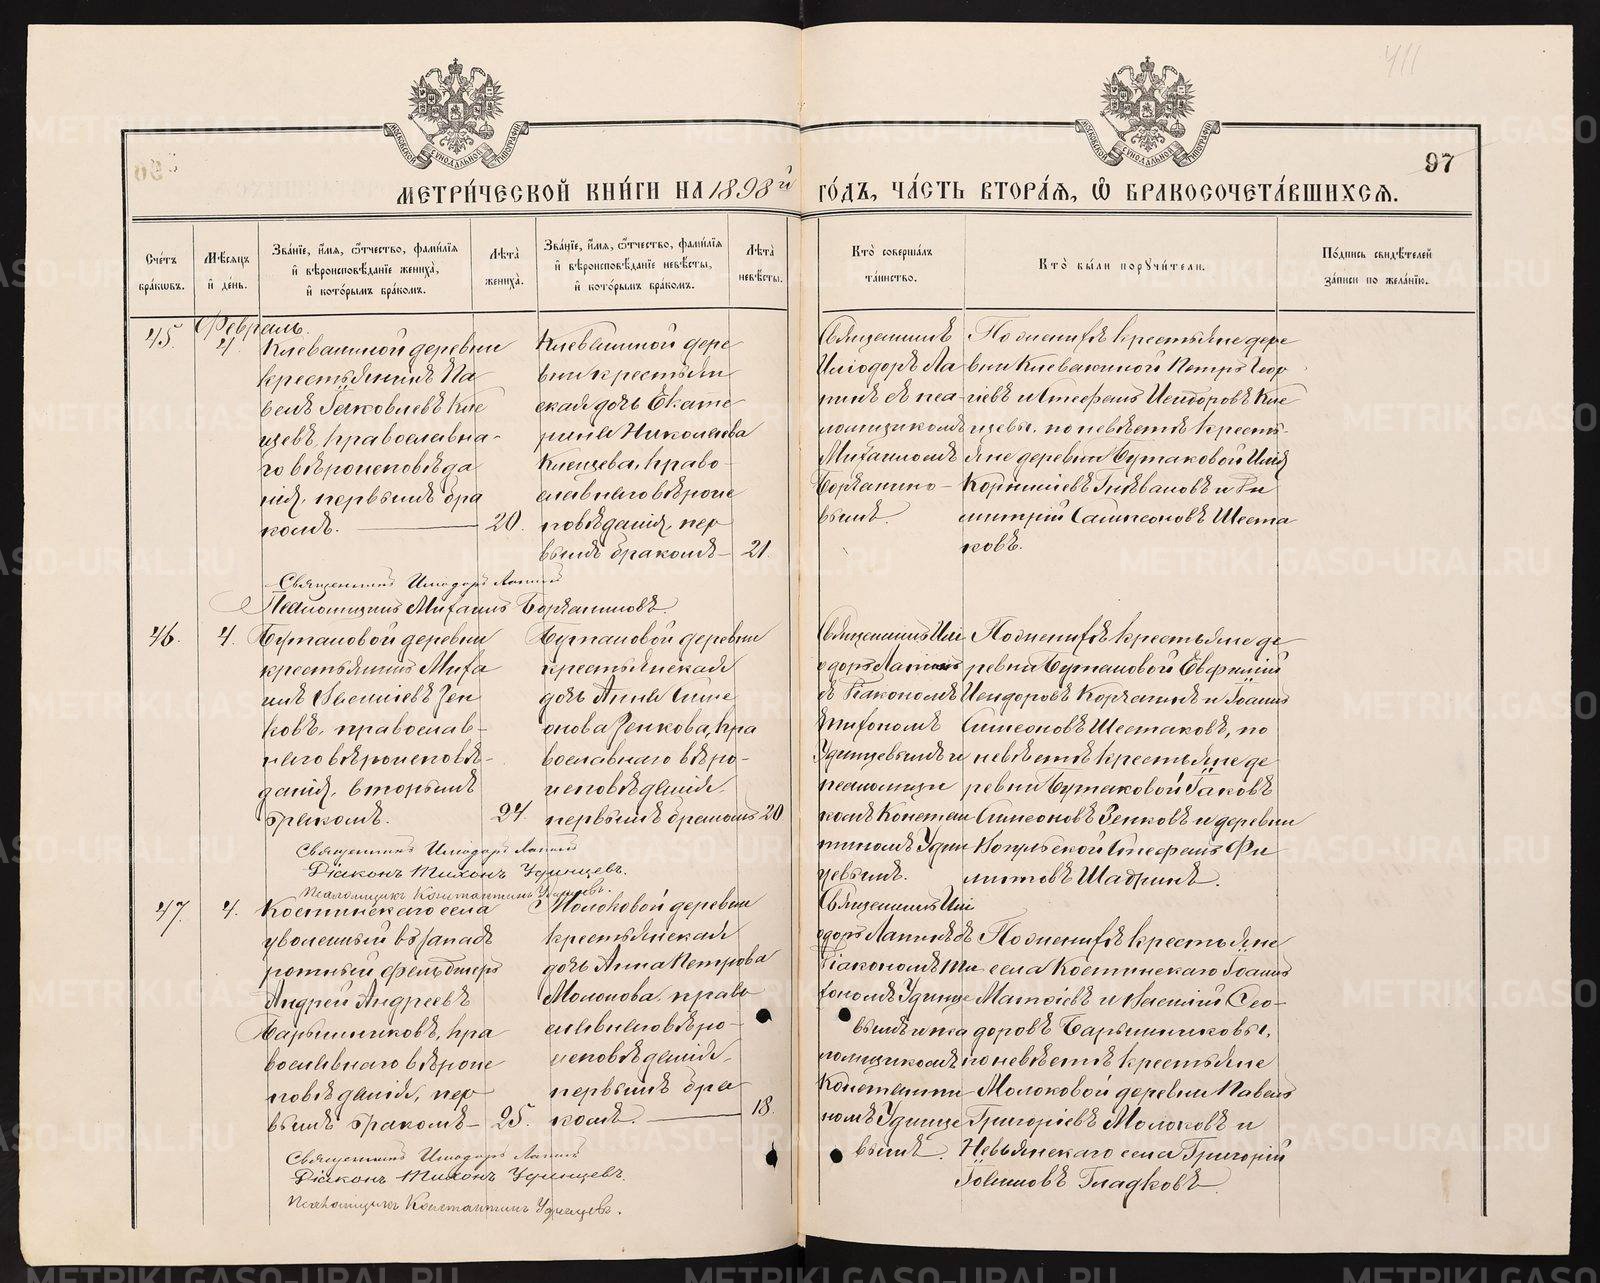 411
97
МЕТРИЧЕСКОЙ КНИГИ НА 1898й ГОДЪ, ЧАСТЬ ВТОРАЯ, Ѡ БРАКОСОЧЕТАВШИХСЯ.
Счетъ браковъ.
Мѣсяцъ и день.
Званіе, имя, отчество, фамилія и вѣроисповѣданіе жениха, и которымъ бракомъ.
Лѣта жениха.
Званіе, имя, отчество, фамилія и вѣроисповѣданіе невѣсты, и которымъ бракомъ.
Лѣта невѣсты.
Кто совершалъ таинство.
Кто были поручители.
Подпись свидѣтелей записи по желанію.
Февраль.
45.
4.
Клевакиной деревни
крестьянинъ Па
велъ Іаковлевъ Кле
щевъ, православна-
го вѣроисповѣда
нія, первымъ бра
комъ.
20.
Клевакиной дере
вни крестьян
ская дочь Екате
рина Николаева
Клещева, право-
славнаго вѣроис
повѣданія, пер
вымъ бракомъ
21.
Священникъ
Иліодоръ Ла
пинъ съ пса
ломщикомъ
Михаиломъ
Корчагино-
вымъ.
По женихѣ крестьяне дере
вни Клевакиной Петръ Геор
гіевъ и Стефанъ Исидоровъ Кле
щевы, по невѣстѣ кресть-
яне деревни Бутаковой Илія
Корниліевъ Голвановъ и Ди
митрій Сампсоновъ Шеста
ковъ.
Священникъ Илиодоръ Лапинъ
Псаломщикъ Михаилъ Корчагиновъ.
46.
4.
Бутаковой деревни
крестьянинъ Миха
илъ Василіевъ Зен
ковъ, православ-
наго вѣроисповѣ-
данія, вторымъ
бракомъ.
24.
Бутаковой деревни
крестьянская
дочь Анна Симе
онова Зенкова, пра
вославнаго вѣро-
исповѣданія,
первымъ бракомъ
20
Священникъ Илі
одоръ Лапинъ
съ діакономъ
Тихономъ
Удинцевымъ и
псаломщи
комъ Констан
тиномъ Удин
цевымъ.
По женихѣ крестьяне де
ревни Бутаковой Евфимій
Исидоровъ Корчагинъ и Іоаннъ
Симеоновъ Шестаковъ, по
невѣстѣ крестьяне де
ревни Бутаковой Іаковъ
Симеоновъ Зенковъ и деревни
Вогульской Стефанъ Фи
липповъ Шадринъ.
Священникъ Илиодоръ Лапинъ
Діаконъ Тихонъ Удинцевъ.
Псаломщикъ Константинъ Удинцевъ.
47.
4.
Костинскаго села
уволенный въ запасъ
ротный фельдшеръ
Андрей Андреевъ
Барышниковъ, пра
вославнаго вѣроис
повѣданія, пер
вымъ бракомъ
25.
Молоковой деревни
крестьянская
дочь Анна Петрова
Молокова, право
славнаго вѣро-
исповѣданія,
первымъ бра
комъ.
18.
Священникъ Илі
одоръ Лапинъ съ
діакономъ Ти
хономъ Удинце
вымъ и пса
ломщикомъ
Константи
номъ Удинце
вымъ.
По женихѣ крестьяне
села Костинскаго Іоаннъ
Матѳіевъ и Василій Ѳео-
доровъ Барышниковы,
по невѣстѣ крестьяне
Молоковой деревни Павелъ
Григоріевъ Молоковъ и
Невьянскаго села Григорій
Гладковъ.
Священникъ Илиодоръ Лапинъ
Діаконъ Тихонъ Удинцевъ.
Псаломщикъ Константинъ Удинцевъ.
METRIKI.GASO-URAL.RU